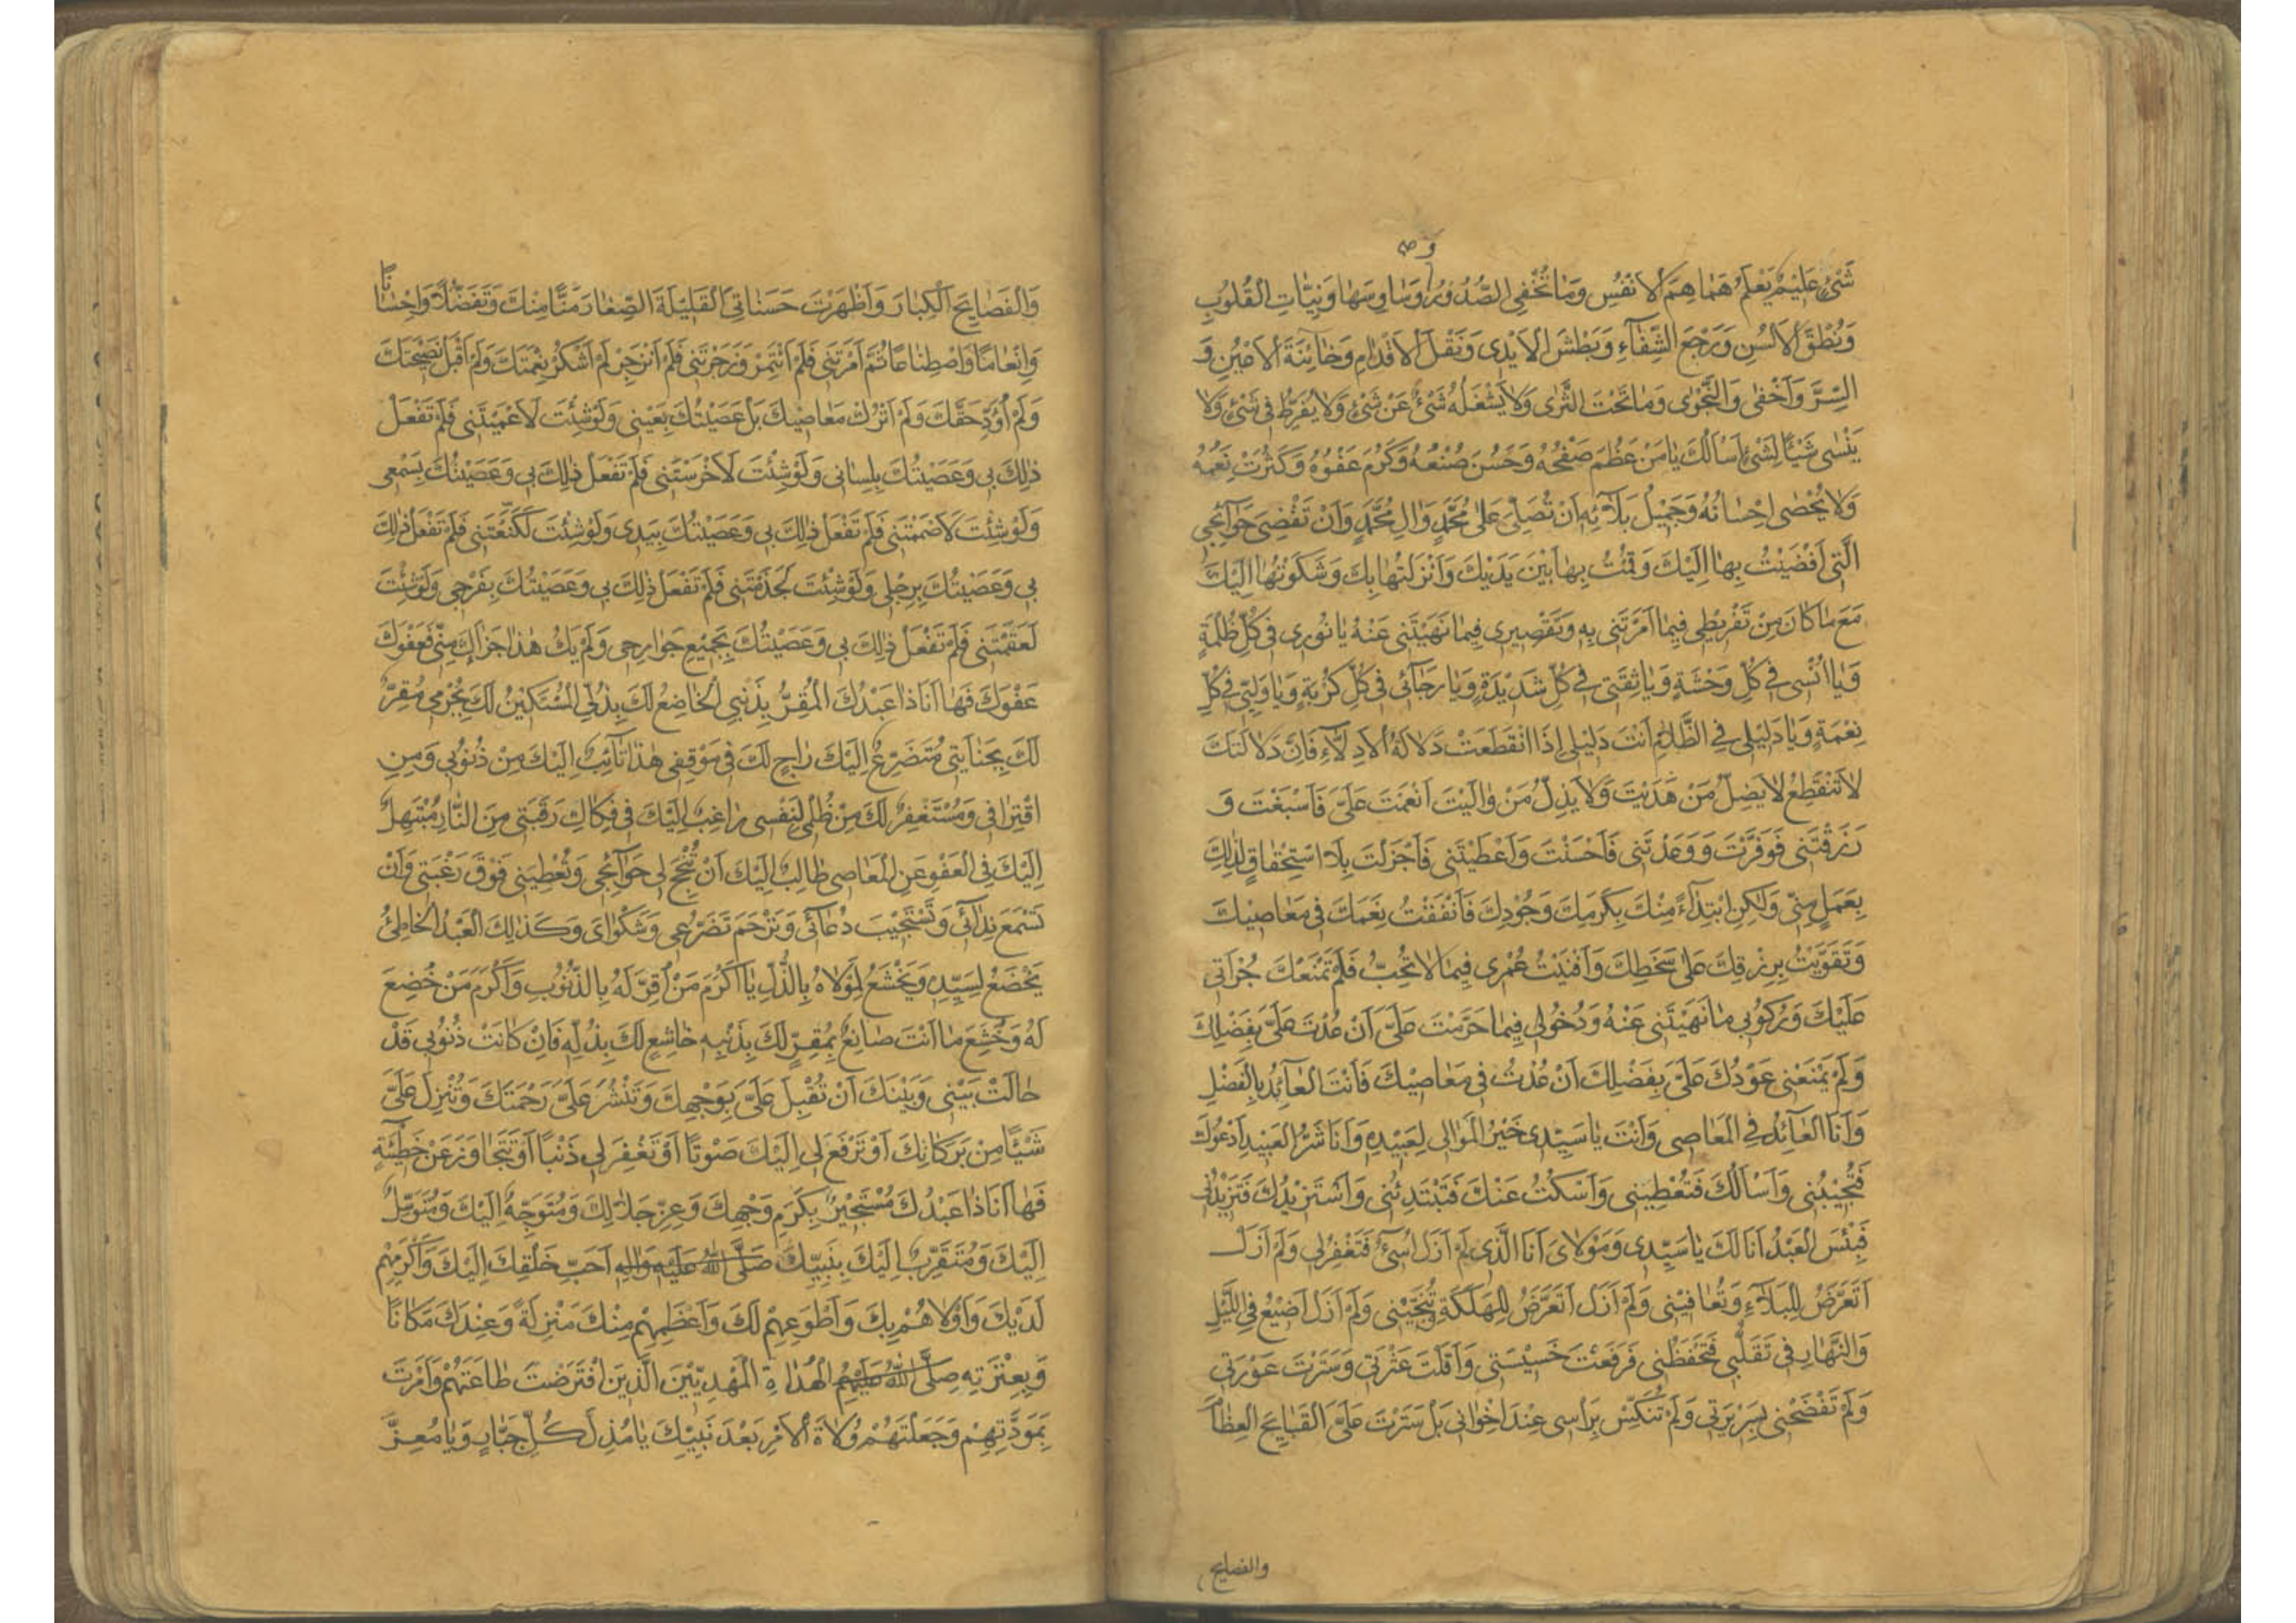 و صه
شَیْءٍ عَلِیْمٌ یَعْلَمُ هَمَاهِمَ الْاَنْفُسِ وَمَا تُخْفِی الصُّدُوْرُ وَسَاوِسَهَا وَنِیَّاتِ الْقُلُوْبِ
وَنُطْقَ الْاَلْسُنِ وَرَجْعَ الشِّفَآءِ وَبَطْشَ الْاَیْدِی وَنَقْلَ الْاَقْدَامِ وَخَآئِنَةَ الْاَعْیُنِ وَ
السِّرَّ وَاَخْفٰی وَالنَّجْوٰی وَمَا تَحْتَ الثَّرٰی وَلَا یَشْغَلُهُ شَیْءٌ عَنْ شَیْءٍ وَلَا یُفَرِّطُ فِی شَیْءٍ وَلَا
یَنْسٰی شَیْئًا لِشَیْءٍ اَسْاَلُكَ یَا مَنْ عَظُمَ صَفْحُهُ وَحَسُنَ صُنْعُهُ وَكَرُمَ عَفْوُهُ وَكَثُرَتْ نِعَمُهُ
وَلَا یُحْصٰی اِحْسَانُهُ وَجَمِیْلُ بَلَآئِهِ اَنْ تُصَلِّیَ عَلٰی مُحَمَّدٍ وَاٰلِ مُحَمَّدٍ وَاَنْ تَقْضِیَ حَوَآئِجِی
الَّتِی اَفْضَیْتُ بِهَا اِلَیْكَ وَقُمْتُ بِهَا بَیْنَ یَدَیْكَ وَاَنْزَلْتُهَا بِكَ وَشَكَوْتُهَا اِلَیْكَ
مَعَ مَا كَانَ مِنْ تَفْرِیْطِی فِیْمَا اَمَرْتَنِی بِهِ وَتَقْصِیْرِی فِیْمَا نَهَیْتَنِی عَنْهُ یَا نُوْرِی فِی كُلِّ ظُلْمَةٍ
وَیَا اُنْسِی فِی كُلِّ وَحْشَةٍ وَیَا ثِقَتِی فِی كُلِّ شَدِیْدَةٍ وَیَا رَجَآئِی فِی كُلِّ كُرْبَةٍ وَیَا وَلِیِّی فِی كُلِّ
نِعْمَةٍ وَیَا دَلِیْلِی فِی الظَّلَامِ اَنْتَ دَلِیْلِی اِذَا انْقَطَعَتْ دَلَالَةُ الْاَدِلَّآءِ فَاِنَّ دَلَالَتَكَ
لَا تَنْقَطِعُ لَا یَضِلُّ مَنْ هَدَیْتَ وَلَا یَذِلُّ مَنْ وَالَیْتَ اَنْعَمْتَ عَلَیَّ فَاَسْبَغْتَ وَ
رَزَقْتَنِی فَوَفَّرْتَ وَوَعَدْتَنِی فَاَحْسَنْتَ وَاَعْطَیْتَنِی فَاَجْزَلْتَ بِلَا اسْتِحْقَاقٍ لِذٰلِكَ
بِعَمَلٍ مِنِّی وَلٰكِنِ ابْتِدَآءً مِنْكَ بِكَرَمِكَ وَجُوْدِكَ فَاَنْفَقْتُ نِعَمَكَ فِی مَعَاصِیْكَ
وَتَقَوَّیْتُ بِرِزْقِكَ عَلٰی سَخَطِكَ وَاَفْنَیْتُ عُمْرِی فِیْمَا لَا تُحِبُّ فَلَمْ تَمْنَعْكَ جُرْاَتِی
عَلَیْكَ وَرُكُوْبِی مَا نَهَیْتَنِی عَنْهُ وَدُخُوْلِی فِیْمَا حَرَّمْتَ عَلَیَّ اَنْ عُدْتَ عَلَیَّ بِفَضْلِكَ
وَلَمْ یَمْنَعْنِی عَوْدُكَ عَلَیَّ بِفَضْلِكَ اَنْ عُدْتُ فِی مَعَاصِیْكَ فَاَنْتَ الْعَآئِدُ بِالْفَضْلِ
وَاَنَا الْعَآئِدُ فِی الْمَعَاصِی وَاَنْتَ یَا سَیِّدِی خَیْرُ الْمَوَالِی لِعَبِیْدِهِ وَاَنَا شَرُّ الْعَبِیْدِ اَدْعُوْكَ
فَتُجِیْبُنِی وَاَسْاَلُكَ فَتُعْطِیْنِی وَاَسْكُتُ عَنْكَ فَتَبْتَدِئُنِی وَاَسْتَزِیْدُكَ فَتَزِیْدُنِی
فَبِئْسَ الْعَبْدُ اَنَا لَكَ یَا سَیِّدِی وَمَوْلَایَ اَنَا الَّذِی لَمْ اَزَلْ اُسِیْٓءُ فَتَغْفِرُ لِی وَلَمْ اَزَلْ
اَتَعَرَّضُ لِلْبَلَآءِ وَتُعَافِیْنِی وَلَمْ اَزَلْ اَتَعَرَّضُ لِلْهَلَكَةِ وَتُنَجِّیْنِی وَلَمْ اَزَلْ اَضِیْعُ فِی اللَّیْلِ
وَالنَّهَارِ فِی تَقَلُّبِی فَتَحْفَظُنِی فَرَفَعْتَ خَسِیْسَتِی وَاَقَلْتَ عَثْرَتِی وَسَتَرْتَ عَوْرَتِی
وَلَمْ تَفْضَحْنِی بِسَرِیْرَتِی وَلَمْ تُنَكِّسْ بِرَاْسِی عِنْدَ اِخْوَانِی بَلْ سَتَرْتَ عَلَیَّ الْقَبَایِحَ الْعِظَامَ
والفضایح
وَالْفَضَایِحَ الْكِبَارَ وَاَظْهَرْتَ حَسَنَاتِیَ الْقَلِیْلَةَ الصِّغَارَ مَنًّا مِنْكَ وَتَفَضُّلًا وَاِحْسَانًا
وَاِنْعَامًا وَاصْطِنَاعًا ثُمَّ اَمَرْتَنِی فَلَمْ اَئْتَمِرْ وَزَجَرْتَنِی فَلَمْ اَنْزَجِرْ لَمْ اَشْكُرْ نِعْمَتَكَ وَلَمْ اَقْبَلْ نَصِیْحَتَكَ
وَلَمْ اُؤَدِّ حَقَّكَ وَلَمْ اَتْرُكْ مَعَاصِیْكَ بَلْ عَصَیْتُكَ بِعَیْنِی وَلَوْ شِئْتَ لَاَعْمَیْتَنِی فَلَمْ تَفْعَلْ
ذٰلِكَ بِی وَعَصَیْتُكَ بِلِسَانِی وَلَوْ شِئْتَ لَاَخْرَسْتَنِی فَلَمْ تَفْعَلْ ذٰلِكَ بِی وَعَصَیْتُكَ بِسَمْعِی
وَلَوْ شِئْتَ لَاَصْمَمْتَنِی فَلَمْ تَفْعَلْ ذٰلِكَ بِی وَعَصَیْتُكَ بِیَدِی وَلَوْ شِئْتَ لَكَنَّعْتَنِی فَلَمْ تَفْعَلْ ذٰلِكَ
بِی وَعَصَیْتُكَ بِرِجْلِی وَلَوْ شِئْتَ لَجَذَمْتَنِی فَلَمْ تَفْعَلْ ذٰلِكَ بِی وَعَصَیْتُكَ بِفَرْجِی وَلَوْ شِئْتَ
لَعَقَمْتَنِی فَلَمْ تَفْعَلْ ذٰلِكَ بِی وَعَصَیْتُكَ بِجَمِیْعِ جَوَارِحِی وَلَمْ یَكُ هٰذَا جَزَآكَ مِنِّی فَعَفْوَكَ
عَفْوَكَ فَهَا اَنَا ذَا عَبْدُكَ الْمُقِرُّ بِذَنْبِی الْخَاضِعُ لَكَ بِذُلِّی الْمُسْتَكِیْنُ لَكَ بِجُرْمِی مُقِرٌّ
لَكَ بِجِنَایَتِی مُتَضَرِّعٌ اِلَیْكَ رَاجٍ لَكَ فِی مَوْقِفِی هٰذَا تَآئِبٌ اِلَیْكَ مِنْ ذُنُوْبِی وَمِنِ
اقْتِرَافِی وَمُسْتَغْفِرٌ لَكَ مِنْ ظُلْمِی لِنَفْسِی رَاغِبٌ اِلَیْكَ فِی فِكَاكِ رَقَبَتِی مِنَ النَّارِ مُبْتَهِلٌ
اِلَیْكَ فِی الْعَفْوِ عَنِ الْمَعَاصِی طَالِبٌ اِلَیْكَ اَنْ تُنْجِحَ لِی حَوَآئِجِی وَتُعْطِیَنِی فَوْقَ رَغْبَتِی وَاَنْ
تَسْمَعَ نِدَآئِی وَتَسْتَجِیْبَ دُعَآئِی وَتَرْحَمَ تَضَرُّعِی وَشَكْوَایَ وَكَذٰلِكَ الْعَبْدُ الْخَاطِئُ
یَخْضَعُ لِسَیِّدِهِ وَیَخْشَعُ لِمَوْلَاهُ بِالذُّلِّ یَا اَكْرَمَ مَنْ اُقِرَّ لَهُ بِالذُّنُوْبِ وَاَكْرَمَ مَنْ خُضِعَ
لَهُ وَخُشِعَ مَا اَنْتَ صَانِعٌ بِمُقِرٍّ لَكَ بِذَنْبِهِ خَاشِعٍ لَكَ بِذُلِّهِ فَاِنْ كَانَتْ ذُنُوْبِی قَدْ
حَالَتْ بَیْنِی وَبَیْنَكَ اَنْ تُقْبِلَ عَلَیَّ بِوَجْهِكَ وَتَنْشُرَ عَلَیَّ رَحْمَتَكَ وَتُنْزِلَ عَلَیَّ
شَیْئًا مِنْ بَرَكَاتِكَ اَوْ تَرْفَعَ لِی اِلَیْكَ صَوْتًا اَوْ تَغْفِرَ لِی ذَنْبًا اَوْ تَتَجَاوَزَ عَنْ خَطِیْٓئَةٍ
فَهَا اَنَا ذَا عَبْدُكَ مُسْتَجِیْرٌ بِكَرَمِ وَجْهِكَ وَعِزِّ جَلَالِكَ وَمُتَوَجِّهٌ اِلَیْكَ وَمُتَوَسِّلٌ
اِلَیْكَ وَمُتَقَرِّبٌ اِلَیْكَ بِنَبِیِّكَ صَلَّی اللهُ عَلَیْهِ وَاٰلِهِ اَحَبِّ خَلْقِكَ اِلَیْكَ وَاَكْرَمِهِمْ
لَدَیْكَ وَاَوْلَاهُمْ بِكَ وَاَطْوَعِهِمْ لَكَ وَاَعْظَمِهِمْ مِنْكَ مَنْزِلَةً وَعِنْدَكَ مَكَانًا
وَبِعِتْرَتِهِ صَلَّی اللهُ عَلَیْهِمُ الْهُدَاةِ الْمَهْدِیِّیْنَ الَّذِیْنَ افْتَرَضْتَ طَاعَتَهُمْ وَاَمَرْتَ
بِمَوَدَّتِهِمْ وَجَعَلْتَهُمْ وُلَاةَ الْاَمْرِ بَعْدَ نَبِیِّكَ یَا مُذِلَّ كُلِّ جَبَّارٍ وَیَا مُعِزَّ